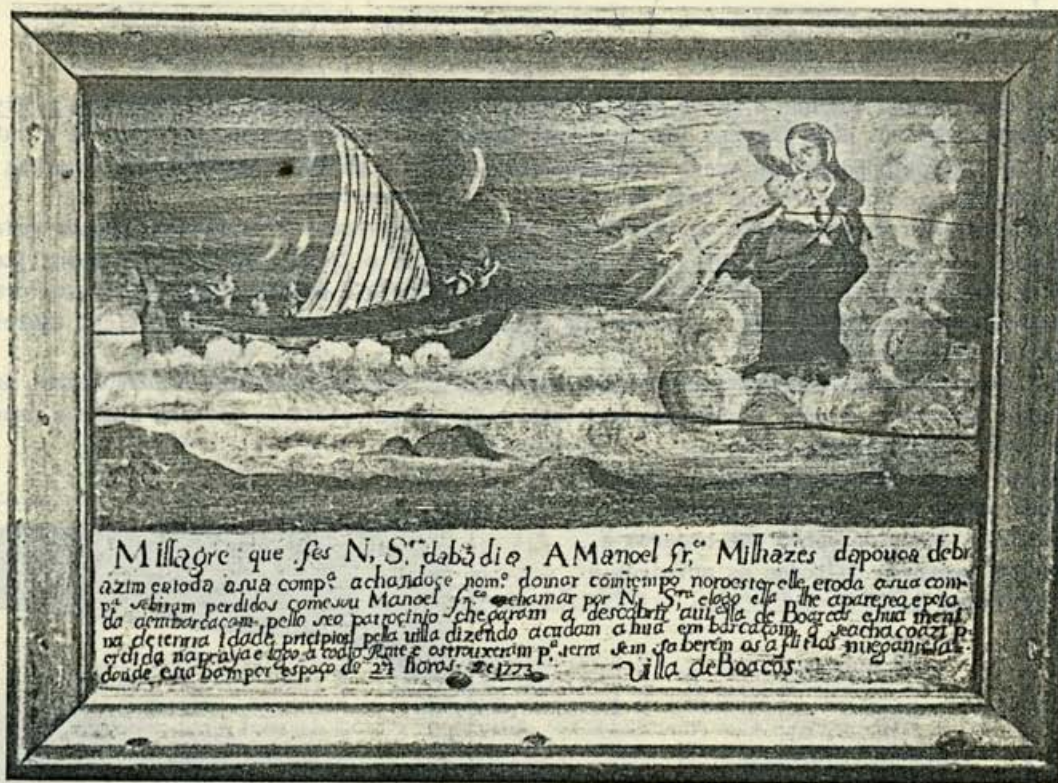 Millagre que fes N, S.ra dabadia, A Manoel fr.co Milhazes dapouoa debr
azim eatoda asua comp.a achandoçe nom.o domar comtempo noroeste elle, etoda asua com-
p.a sebiram perdidos comesou Manoel fr.co achamar por N. S.ra elogo ella lhe apareseo epela
da aembarcaçam pello seo patrocinio chegaram a descobrir auilla de Boarcos ehua meni
na detenrra Idade pricipiou pella uilla dizendo acudam ahua embarcaçam q seachacoazi p
erdida napraya e logo a todo gente e ostrouxeram p.a terra sem saberem os
donde estabam per espaço de 24 horas. 1773 Villa de Boacos